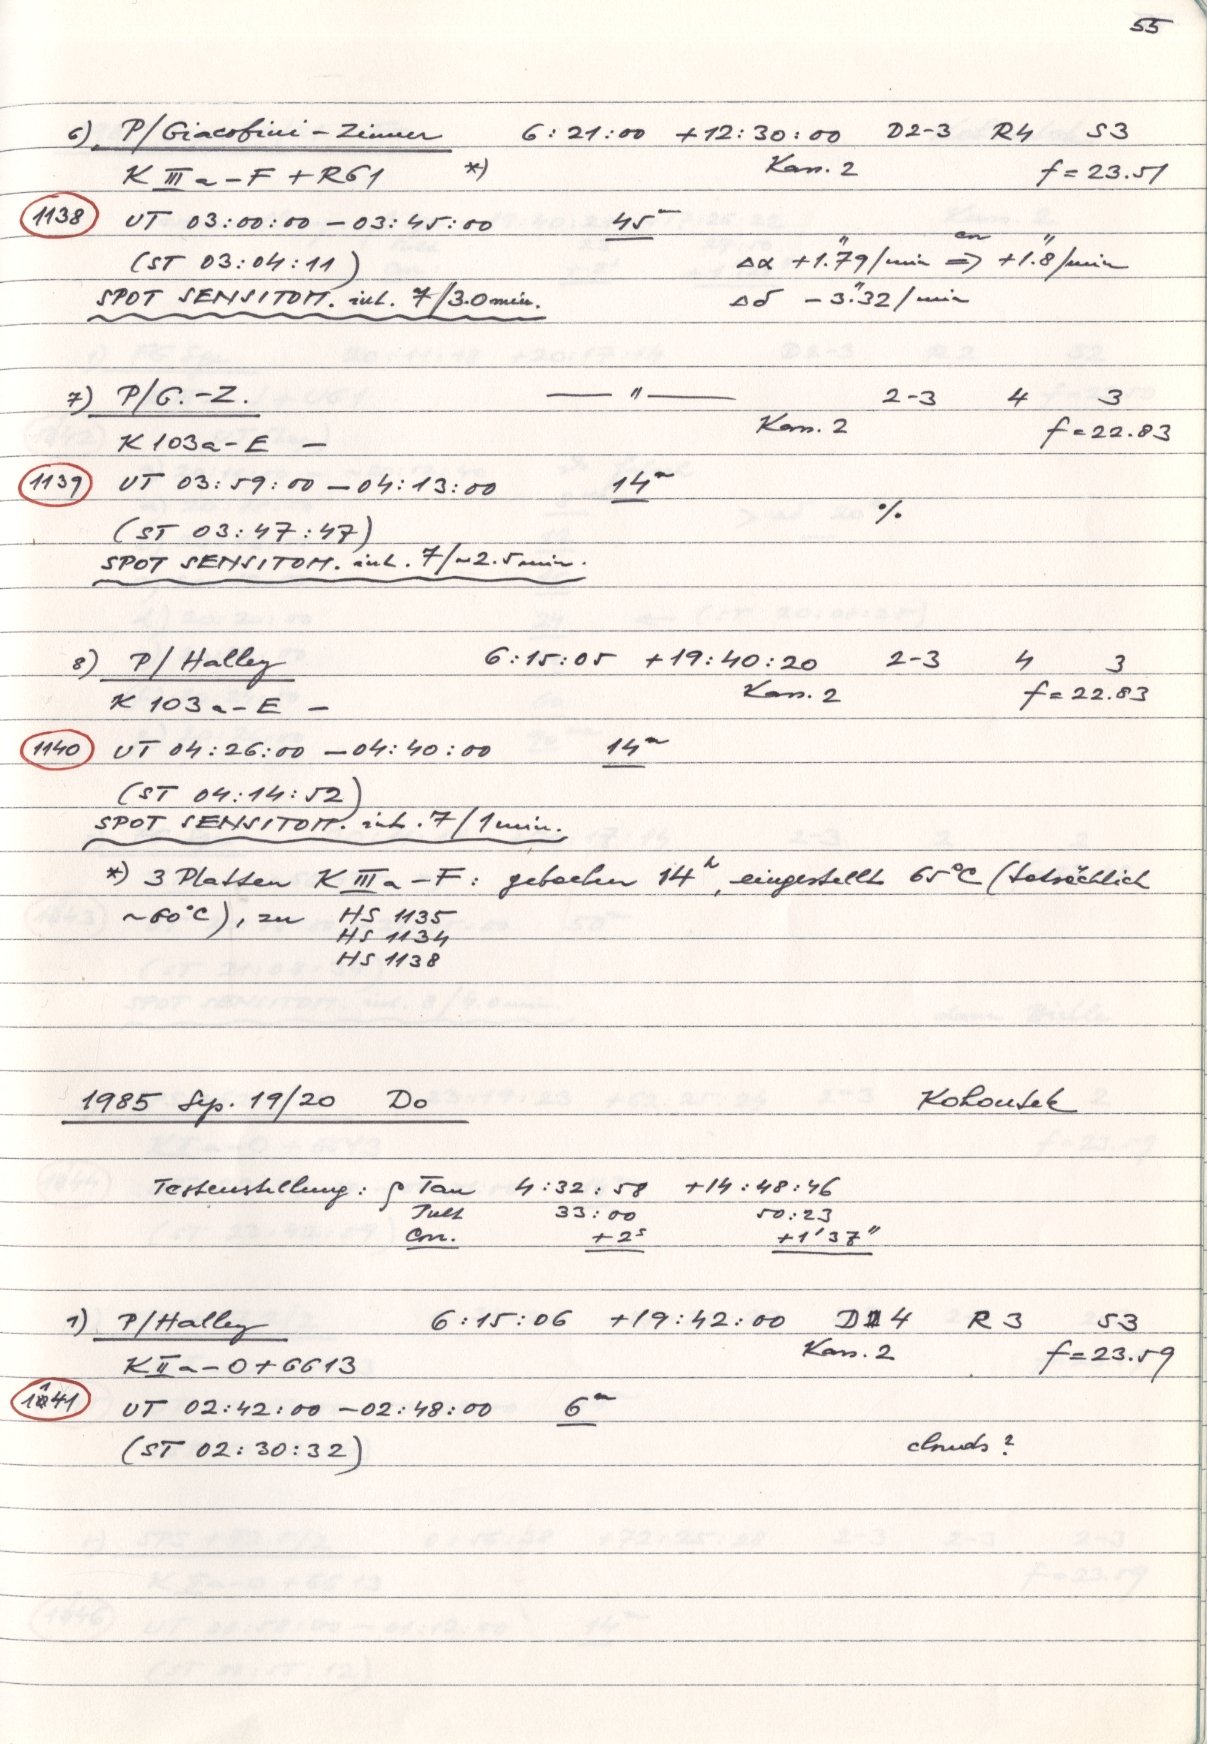 55
6) P/Giacobini-Zinner 6:21:00 +12:30:00 D2-3 R4 S3
K IIIa-F + RG1 *) Kass. 2 f=23.51
1138 UT 03:00:00 – 03:45:00 45m
(ST 03:04:11) Δα +1."79/min ⇒ +1."8/min
SPOT SENSITOM. int. 7/3.0min. Δδ -3."32/min
7) P/G.-Z. — " — 2-3 4 3
K 103a-E – Kass. 2 f=22.83
1139 UT 03:59:00 – 04:13:00 14m
(ST 03:47:47) %
SPOT SENSITOM. int. 7/~2.5min.
8) P/Halley 6:15:05 +19:40:20 2-3 4 3
K 103a-E – Kass. 2 f=22.83
1140 UT 04:26:00 – 04:40:00 14m
(ST 04:14:52)
SPOT SENSITOM. int. 7/1min.
*) 3 Platten K IIIa-F: gebacken 14h, eingestellt 65°C (tatsächlich
~60°C), zu HS 1135
HS 1134
HS 1138
1985 Sep. 19/20 Do Kohoutek
Testeinstellung: ρ Tau 4:32:58 +14:48:46
Pult 33:00 50:23
Corr. +2s +1'37"
1) P/Halley 6:15:06 +19:42:00 D4 R3 S3
K IIa-O + GG13 Kass. 2 f=23.59
1141 UT 02:42:00 – 02:48:00 6m
(ST 02:30:32) clouds?